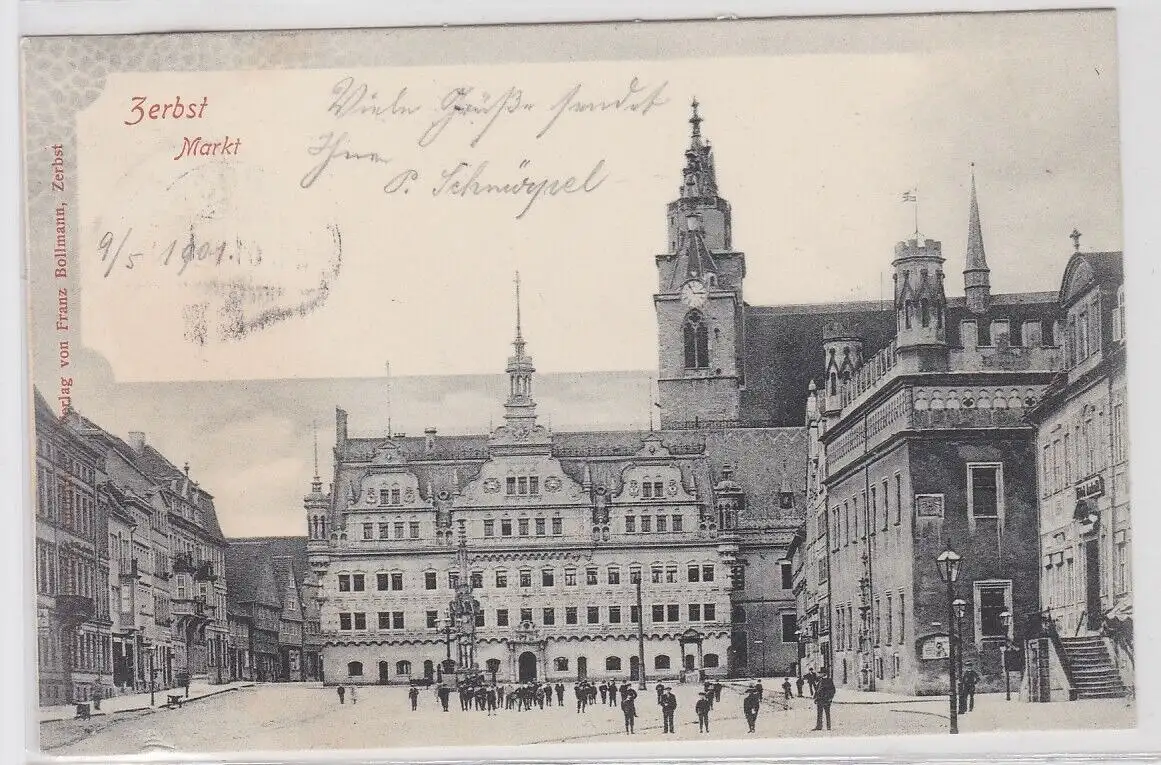 Zerbst
Markt
Viele Grüße sendet
Ihnen
P. Schnöpel
9/5 1901.
Verlag von Franz Bollmann, Zerbst